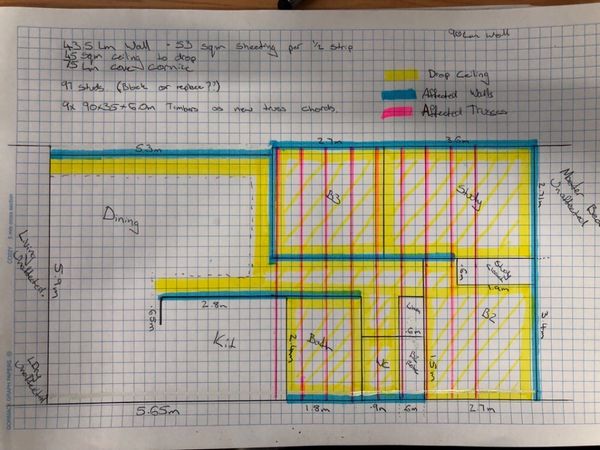 43.5 Lm Wall - 53 sqm Sheeting per 1/2 strip
45 sqm ceiling to drop
75 Lm cove cornice
97 Studs. (Block or replace??)
9x 90x35x6.0m Timbers as new truss chords.
90 Lm Wall
Drop Ceiling
Affected Walls
Affected Trusses
5.3m
2.7m
3.6m
Dining
B3
Study
2.71m
Master Bed
Unaffected
Living
Unaffected.
5.9m
.6m
1.9m
2.8m
.65m
Kit
Bath
2.4m
Linen
.6m
WC
1.5m
B2
3.4m
LDry
Unaffected
5.65m
1.8m
.9m
.6m
2.7m